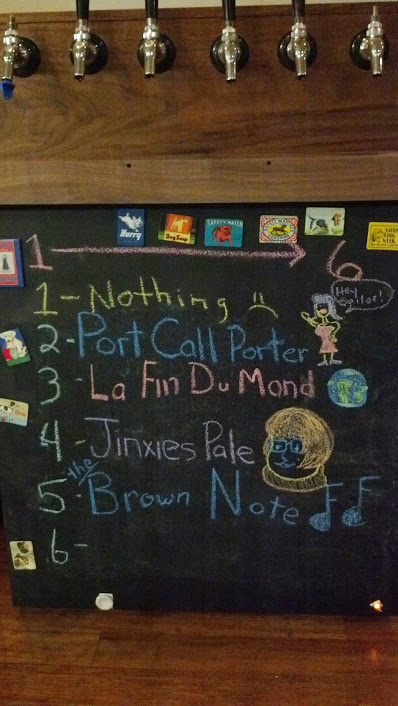 Hurry
Dog Soap
SAFETY MATCH
1 6
Hey Sailor!
1 - Nothing :(
2 - Port Call Porter
3 - La Fin Du Mond
4 - Jinxies Pale
5 - the Brown Note
6 -